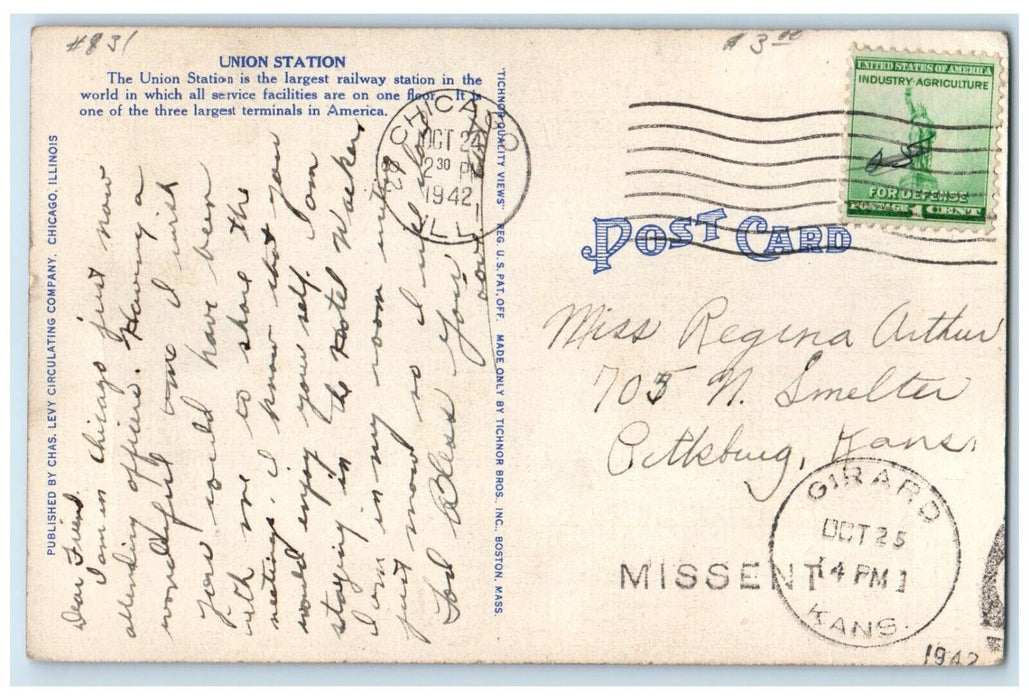 #831
$3.00
UNION STATION
The Union Station is the largest railway station in the
world in which all service facilities are on one floor. It is
one of the three largest terminals in America.
PUBLISHED BY CHAS. LEVY CIRCULATING COMPANY, CHICAGO, ILLINOIS
Dear Friend
I am in Chicago just now
attending office. Having a
wonderful time I wish
you would have been
with me to share the
meetings. I know that you
would enjoy your self. I am
staying in the Hotel Waker
I am in my room writing
just now so I will close
God Bless you
"TICHNOR QUALITY VIEWS" REG. U. S. PAT. OFF. MADE ONLY BY TICHNOR BROS., INC., BOSTON, MASS.
CHICAGO
OCT 24
2 30 PM
1942
ILL.
UNITED STATES OF AMERICA
INDUSTRY·AGRICULTURE
FOR DEFENSE
POSTAGE 1 CENT
POST CARD
Miss Regina Arthur
705 N. Smelter
Pittsburg, Kans.
MISSENT
GIRARD
OCT 25
4 PM
KANS.
1942